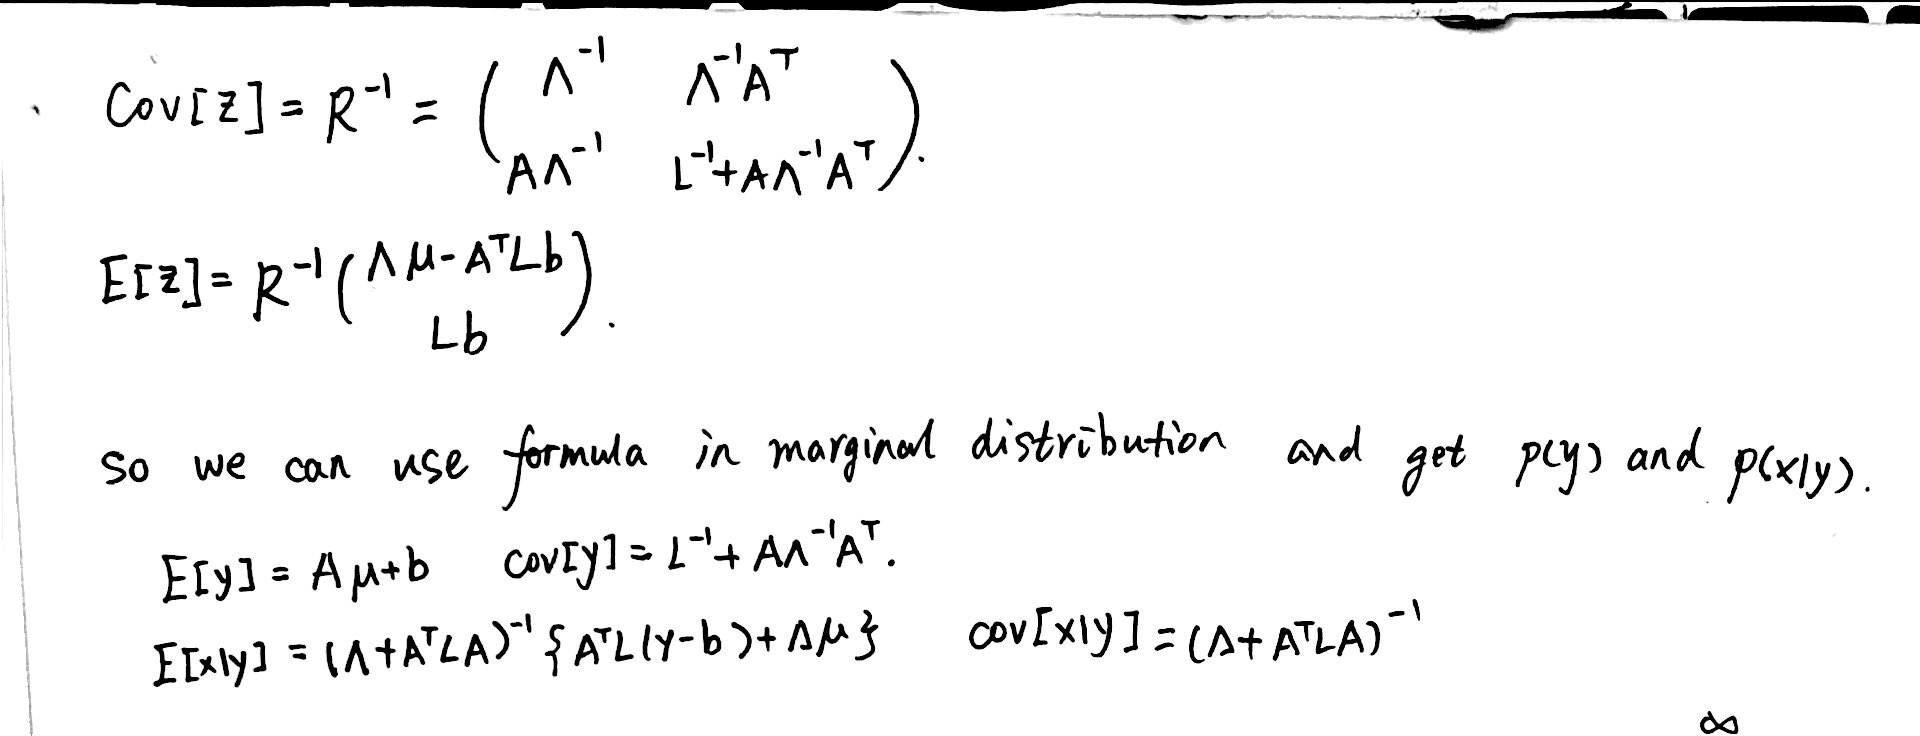 Cov[z] = R⁻¹ = ( Λ⁻¹ Λ⁻¹Aᵀ
AΛ⁻¹ L⁻¹+AΛ⁻¹Aᵀ ).
E[z] = R⁻¹ ( Λμ-AᵀLb
Lb ).
So we can use formula in marginal distribution and get p(y) and p(x|y).
E[y] = Aμ+b cov[y] = L⁻¹+AΛ⁻¹Aᵀ.
E[x|y] = (Λ+AᵀLA)⁻¹{AᵀL(y-b)+Λμ} cov[x|y] = (Λ+AᵀLA)⁻¹
∞